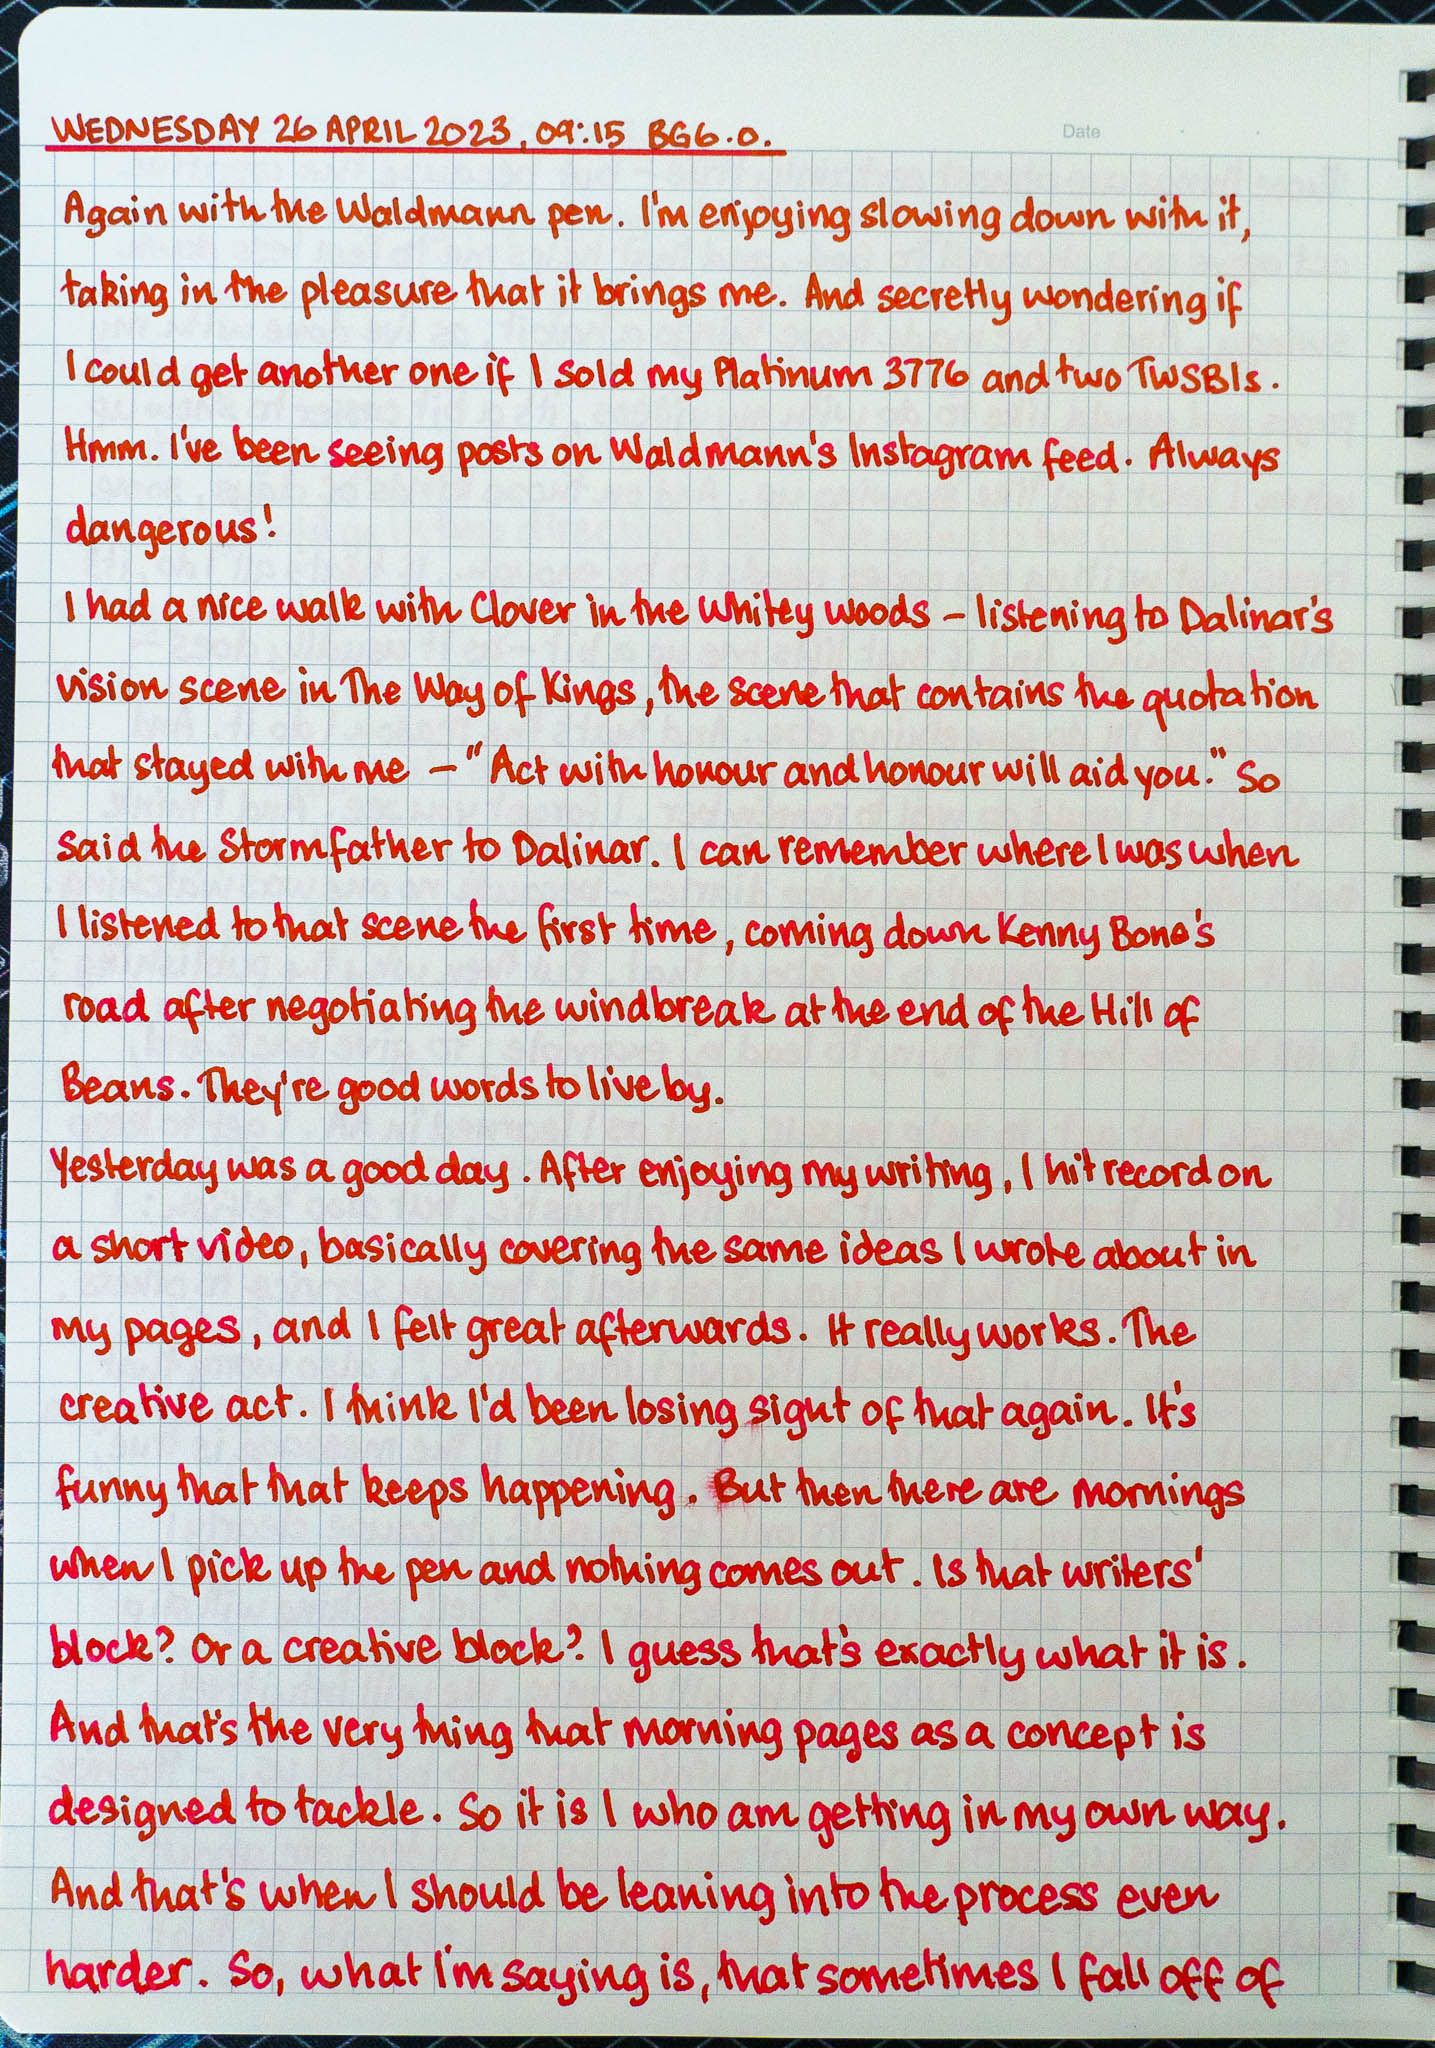 WEDNESDAY 26 APRIL 2023, 09:15 BG6.0.
Date
Again with the Waldmann pen. I'm enjoying slowing down with it,
taking in the pleasure that it brings me. And secretly wondering if
I could get another one if I sold my Platinum 3776 and two TWSBIs.
Hmm. I've been seeing posts on Waldmann's Instagram feed. Always
dangerous!
I had a nice walk with Clover in the Whitey Woods – listening to Dalinar's
vision scene in The Way of Kings, the scene that contains the quotation
that stayed with me – "Act with honour and honour will aid you." So
said the Stormfather to Dalinar. I can remember where I was when
I listened to that scene the first time, coming down Kenny Bone's
road after negotiating the windbreak at the end of the Hill of
Beans. They're good words to live by.
Yesterday was a good day. After enjoying my writing, I hit record on
a short video, basically covering the same ideas I wrote about in
my pages, and I felt great afterwards. It really works. The
creative act. I think I'd been losing sight of that again. It's
funny that that keeps happening. But then there are mornings
when I pick up the pen and nothing comes out. Is that writers'
block? Or a creative block? I guess that's exactly what it is.
And that's the very thing that morning pages as a concept is
designed to tackle. So it is I who am getting in my own way.
And that's when I should be leaning into the process even
harder. So, what I'm saying is, that sometimes I fall off of